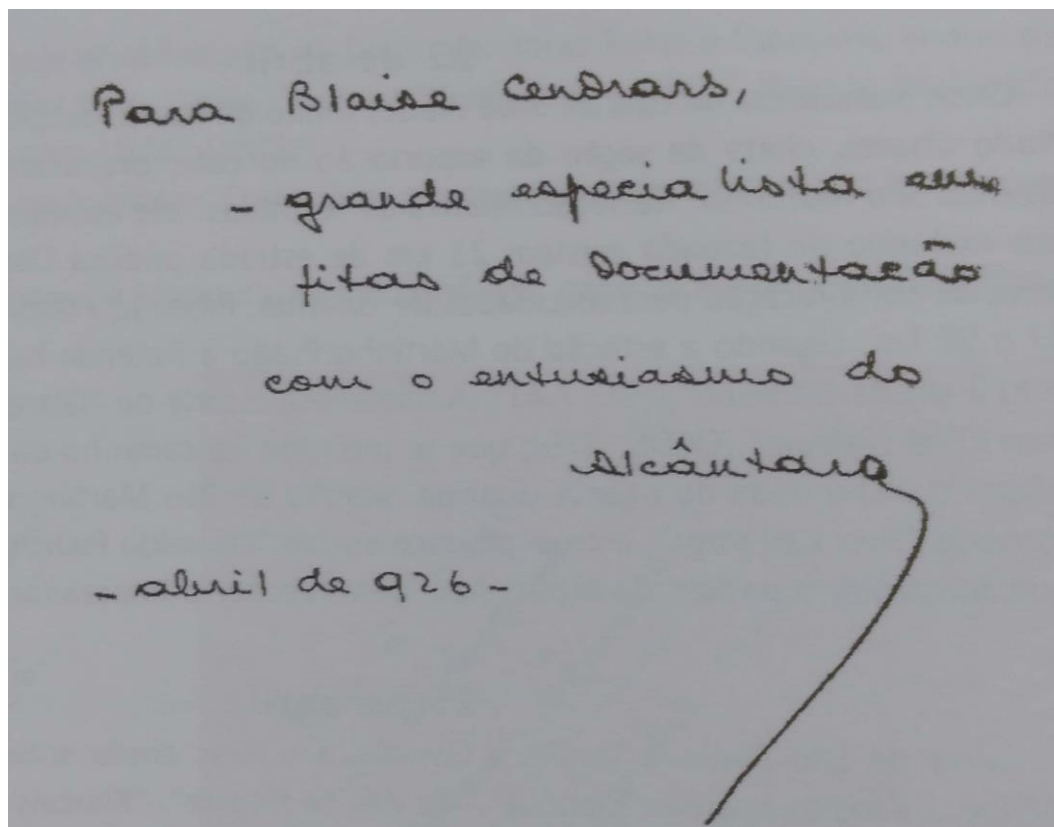 Para Blaise Cendrars,
- grande especialista em
fitas de documentação
com o entusiasmo do
Alcântara
- abril de 926 -